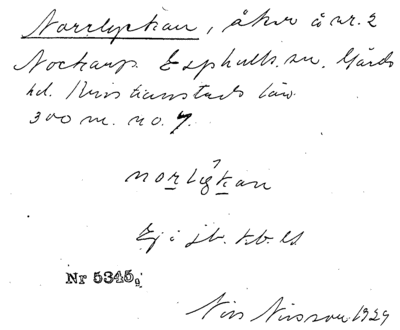 Norrlyckan, åker å nr. 2
Nockarp Esphults sn. Gärds
hd. Kristianstads län.
300 m. no. 7.
norligkan
Ej i jb. kb. ls
Nr 5345.
Nils Nilsson 1929